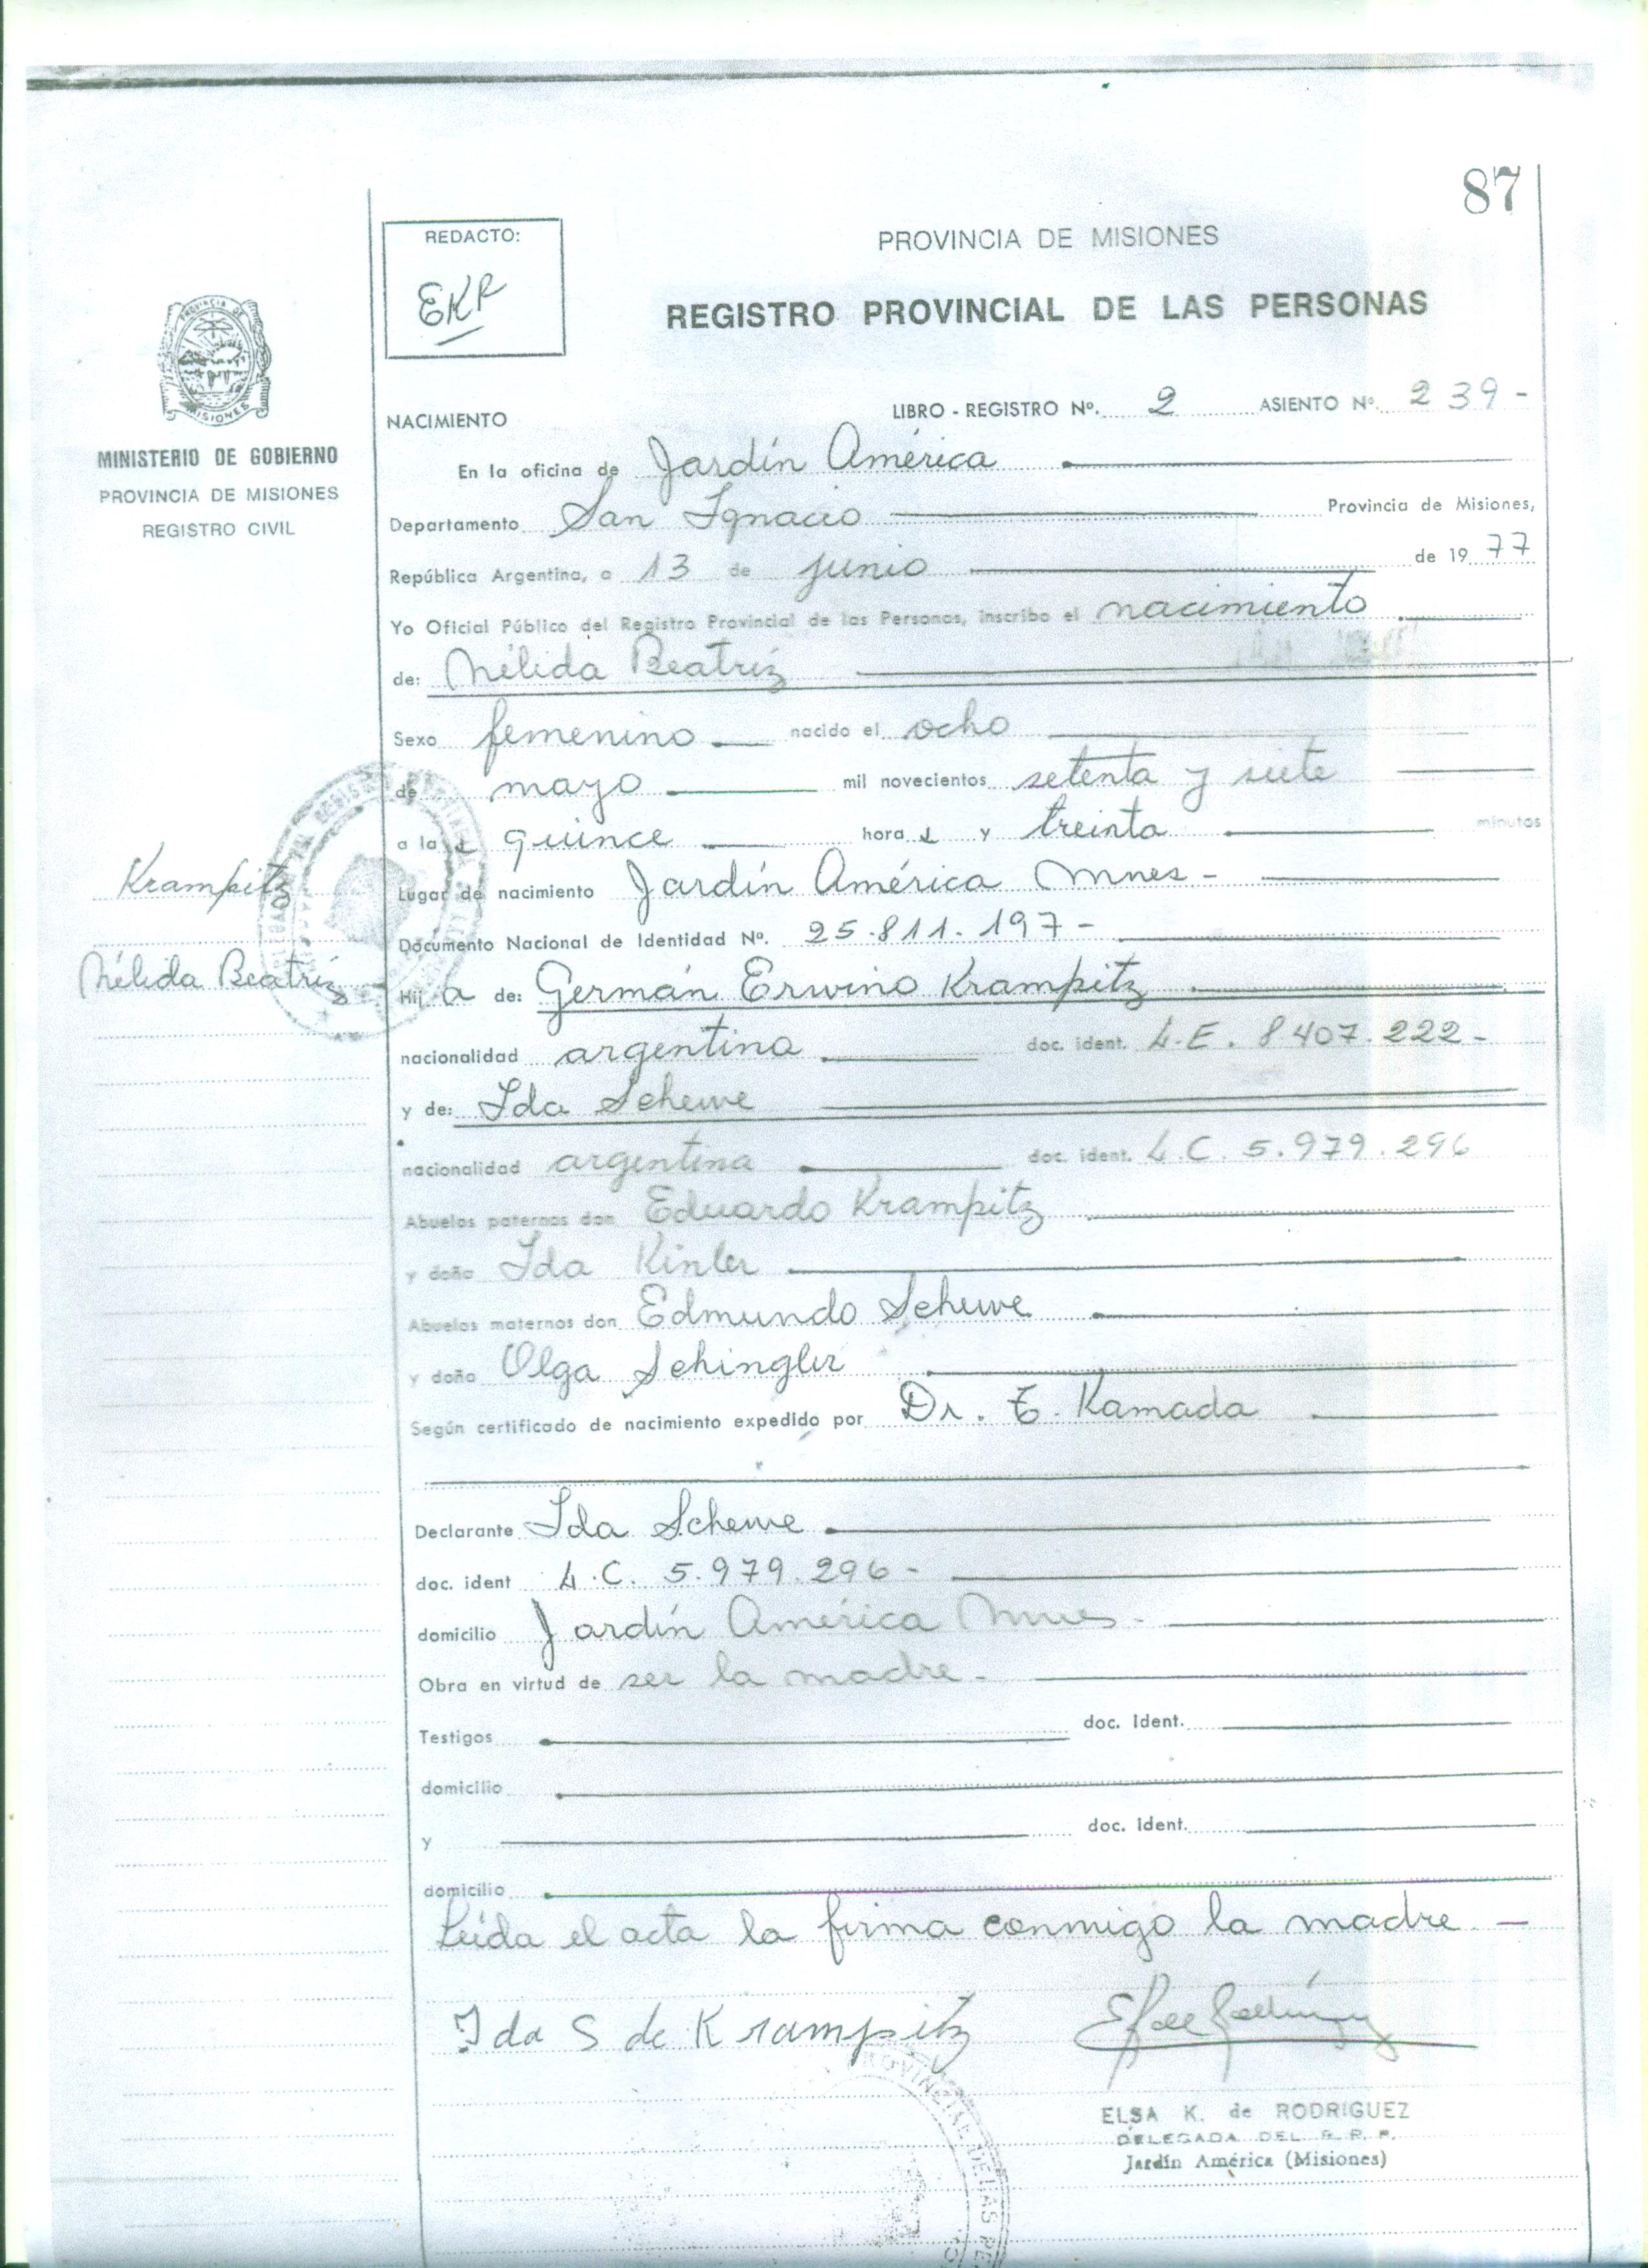 87
REDACTO:
EKR
PROVINCIA DE MISIONES
REGISTRO PROVINCIAL DE LAS PERSONAS
PROVINCIA DE
MISIONES
MINISTERIO DE GOBIERNO
PROVINCIA DE MISIONES
REGISTRO CIVIL
NACIMIENTO LIBRO - REGISTRO Nº. 2 ASIENTO Nº. 239 -
En la oficina de Jardín América
Departamento San Ignacio Provincia de Misiones,
República Argentina, a 13 de junio de 1977
Yo Oficial Público del Registro Provincial de las Personas, inscribo el nacimiento
de: Nélida Beatriz
Sexo femenino nacido el ocho
de mayo mil novecientos setenta y siete
a las quince horas y treinta minutos
Krampitz
Lugar de nacimiento Jardín América Mnes -
Documento Nacional de Identidad Nº. 25.811.197 -
Nélida Beatriz
Hija de: Germán Erwino Krampitz
nacionalidad argentina doc. ident. L.E. 8407.222 -
y de: Ida Schewe
nacionalidad argentina doc. ident. L.C. 5.979.296
Abuelos paternos don Eduardo Krampitz
y doña Ida Kinler
Abuelos maternos don Edmundo Schewe
y doña Olga Schingler
Según certificado de nacimiento expedido por Dr. T. Kamada
Declarante Ida Schewe
doc. ident L.C. 5.979.296 -
domicilio Jardín América Mnes -
Obra en virtud de ser la madre -
Testigos doc. Ident.
domicilio
y doc. Ident.
domicilio
Leída el acta la firma conmigo la madre. -
Ida S de Krampitz
ELSA K. de RODRIGUEZ
DELEGADA DEL R. P. P.
Jardín América (Misiones)
PROVINCIAL DE LAS PE